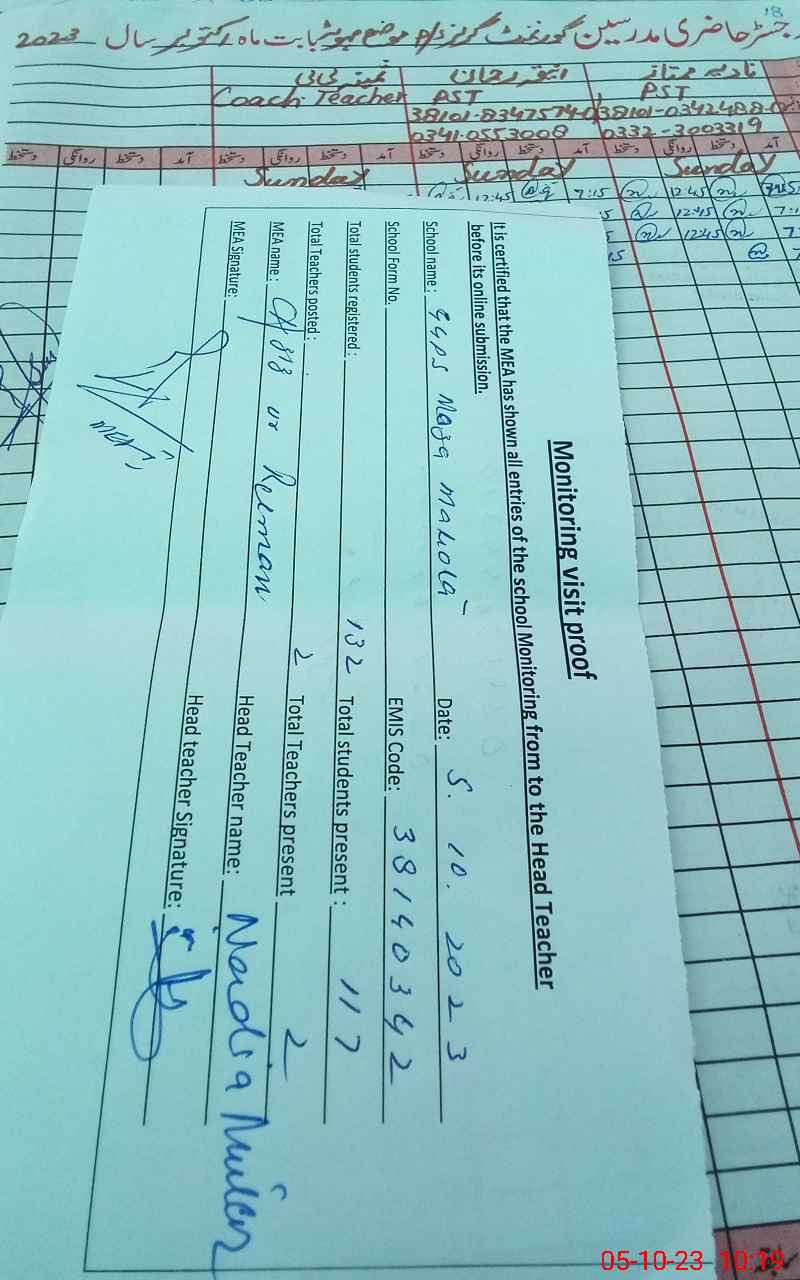 18
رجسٹر حاضری مدرسین گورنمنٹ گرلز P/S موضع مہوٹہ بابت ماہ اکتوبر سال 2023
نادیہ ممتاز
PST
38101-0342488-0
0332-3003319
PST
38101-8347574-0
0341-0553008
Coach Teacher
آمد دستخط روانگی دستخط آمد دستخط روانگی دستخط آمد دستخط روانگی دستخط
Sunday Sunday Sunday
12:45 7:15 12:45
12:45
12:45
Monitoring visit proof
It is certified that the MEA has shown all entries of the school Monitoring from to the Head Teacher
before its online submission.
School name: GGPS Maza Mahota Date: 5. 10. 2023
School Form No. EMIS Code: 38140342
Total students registered: 132 Total students present: 117
Total Teachers posted: 2 Total Teachers present 2
MEA name: ur Rehman Head Teacher name: Nadia
MEA Signature: Head teacher Signature:
MEA
05-10-23 10:19